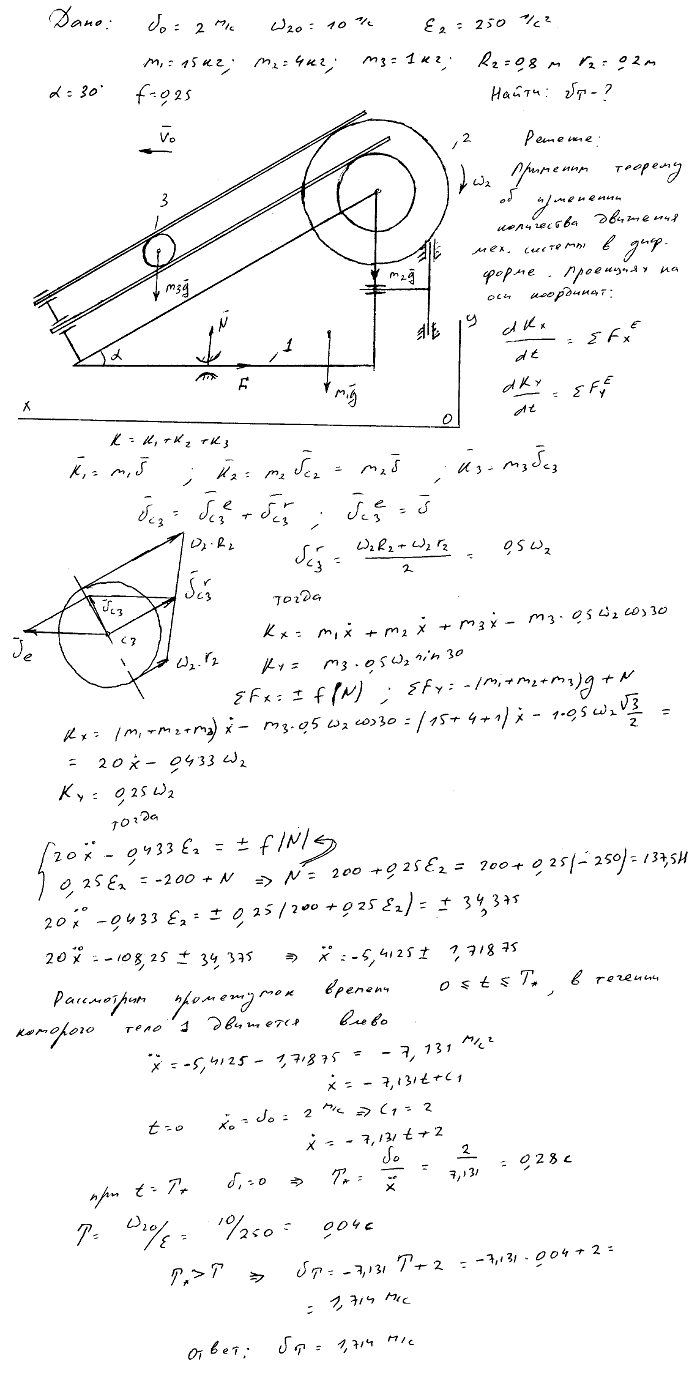 Дано: v0 = 2 м/с ω20 = 10 1/с ε2 = 250 1/с²
m1 = 15 кг; m2 = 4 кг; m3 = 1 кг; R2 = 0,8 м r2 = 0,2 м
α = 30° f = 0,25 Найти: vT - ?
V̄0
2
3
ω2
Решение:
Применим теорему
об изменении
количества движения
мех. системы в диф.
форме. Проекциях на
оси координат:
m3ḡ
m2ḡ
N̄
α
1
F
m1ḡ
y
x
O
dKx/dt = ΣFx^E
dKy/dt = ΣFy^E
K = K1 + K2 + K3
K̄1 = m1v̄ ; K̄2 = m2v̄c2 = m2v̄ ; K̄3 = m3v̄c3
v̄c3 = v̄c3^e + v̄c3^r ; v̄c3^e = v̄
ω2·R2
v̄c3^r
v̄c3
c3
v̄e
ω2·r2
vc3^r = (ω2R2 + ω2r2)/2 = 0,5ω2
тогда
Kx = m1ẋ + m2ẋ + m3ẋ - m3·0,5ω2cos30
Ky = m3·0,5ω2sin30
ΣFx = ± f|N| ; ΣFy = -(m1+m2+m3)g + N
Kx = (m1+m2+m3)ẋ - m3·0,5ω2cos30 = (15+4+1)ẋ - 1·0,5ω2 √3/2 =
= 20ẋ - 0,433ω2
Ky = 0,25ω2
тогда
{ 20ẍ - 0,433ε2 = ± f|N|
0,25ε2 = -200 + N ⇒ N = 200 + 0,25ε2 = 200 + 0,25(-250) = 137,5Н
20ẍ - 0,433ε2 = ± 0,25|200 + 0,25ε2| = ± 34,375
20ẍ = -108,25 ± 34,375 ⇒ ẍ = -5,4125 ± 1,71875
Рассмотрим промежуток времени 0 ≤ t ≤ T*, в течении
которого тело 1 движется влево
ẍ = -5,4125 - 1,71875 = -7,131 м/с²
ẋ = -7,131t + c1
t=0 ẋ0 = v0 = 2 м/с ⇒ C1 = 2
ẋ = -7,131t + 2
при t = T* v1 = 0 ⇒ T* = v0/ẍ = 2/7,131 = 0,28 с
T = ω20/ε = 10/250 = 0,04с
T* > T ⇒ vT = -7,131 T + 2 = -7,131·0,04 + 2 =
= 1,714 м/с
ответ: vT = 1,714 м/с